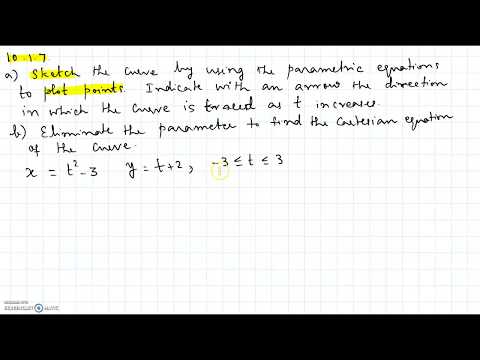 10.1.7
a) Sketch the curve by using the parametric equations
to plot points. Indicate with an arrow the direction
in which the curve is traced as t increases.
b) Eliminate the parameter to find the Cartesian equation
of the curve.
x = t² - 3 y = t + 2, -3 ≤ t ≤ 3